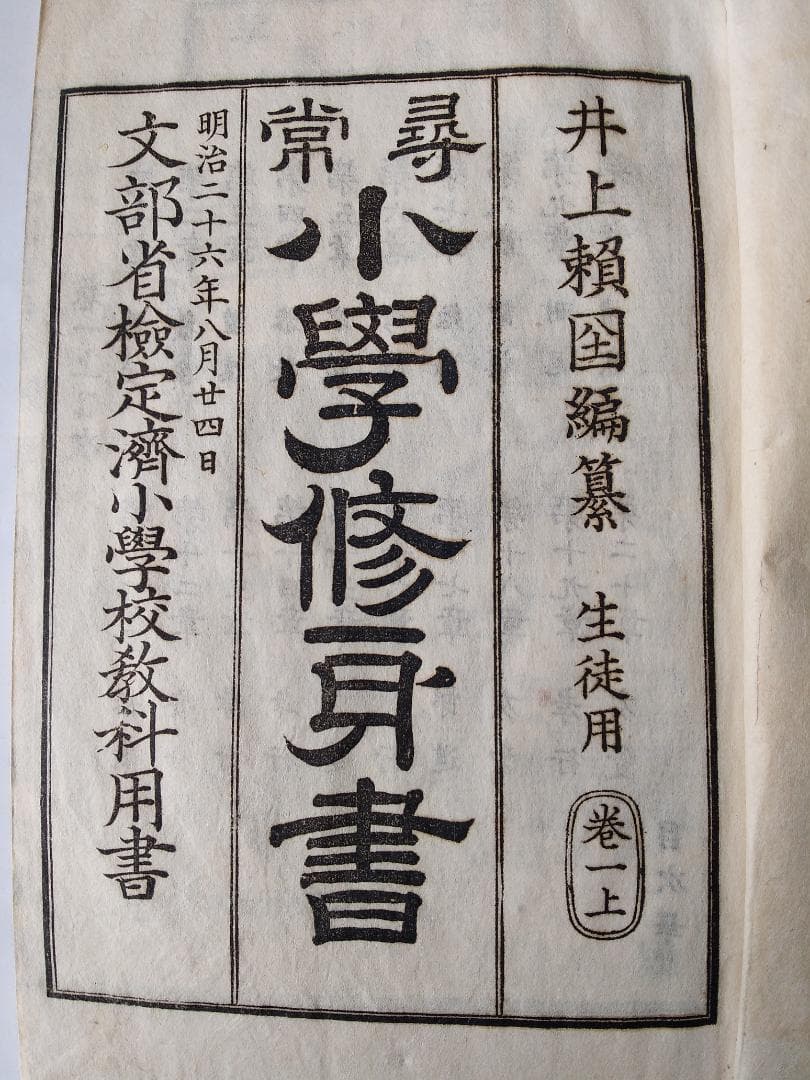 井上賴圀編纂 生徒用 卷一上
尋常小學修身書
明治二十六年八月廿四日
文部省檢定濟小學校敎科用書